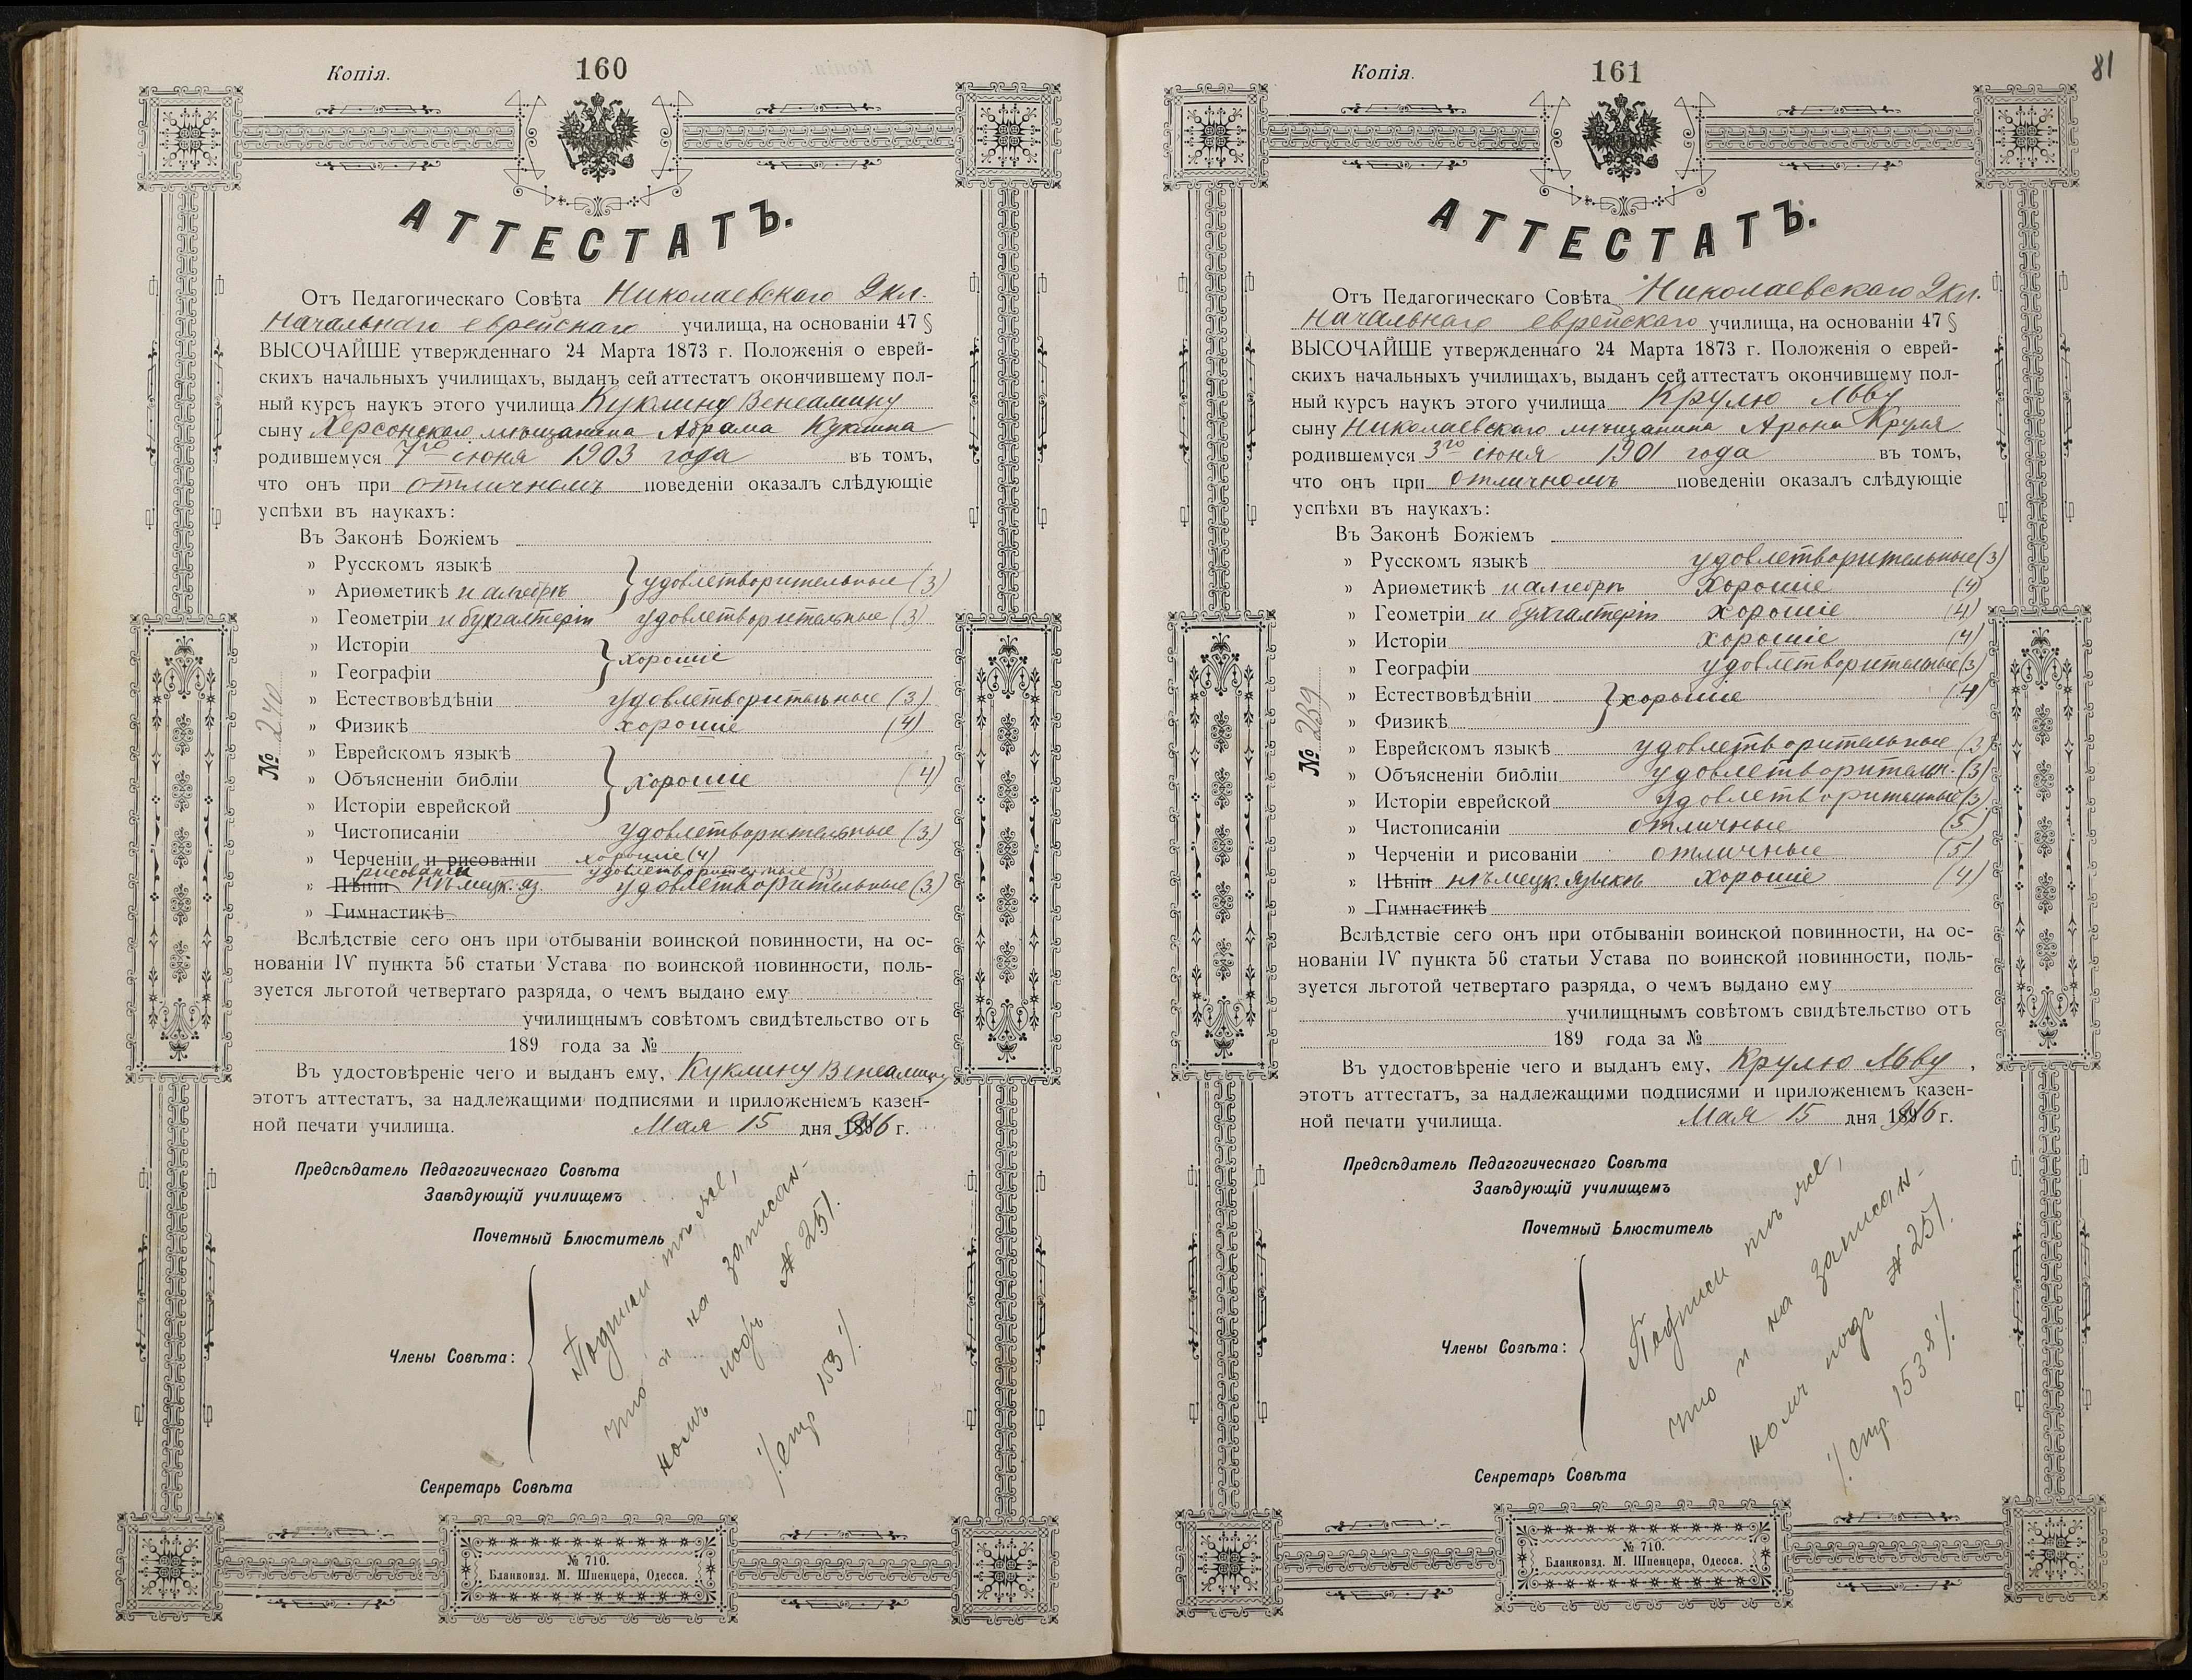 Копія.
160
АТТЕСТАТЪ.
Отъ Педагогическаго Совѣта Николаевскаго 2кл.
Начальнаго еврейскаго училища, на основаніи 47 §
ВЫСОЧАЙШЕ утвержденнаго 24 Марта 1873 г. Положенія о еврей-
скихъ начальныхъ училищахъ, выданъ сей аттестатъ окончившему пол-
ный курсъ наукъ этого училища Куклину Веніамину
сыну Херсонскаго мѣщанина Абрама Куклина
родившемуся 7го іюня 1903 года въ томъ,
что онъ при отличномъ поведеніи оказалъ слѣдующіе
успѣхи въ наукахъ:
Въ Законѣ Божіемъ
» Русскомъ языкѣ
» Ариѳметикѣ и алгебрѣ } удовлетворительные (3)
» Геометріи и бухгалтеріи удовлетворительные (3)
» Исторіи
» Географіи } хорошіе
» Естествовѣдѣніи удовлетворительные (3)
» Физикѣ хорошіе (4)
» Еврейскомъ языкѣ
» Объясненіи библіи } хорошіе (4)
» Исторіи еврейской
» Чистописаніи удовлетворительные (3)
» Черченіи и рисованіи хорошіе (4)
рисованіи удовлетворительные (3)
» Пѣніи нѣмецк. яз. удовлетворительные (3)
» Гимнастикѣ
№ 240
Вслѣдствіе сего онъ при отбываніи воинской повинности, на ос-
нованіи IV пункта 56 статьи Устава по воинской повинности, поль-
зуется льготой четвертаго разряда, о чемъ выдано ему
училищнымъ совѣтомъ свидѣтельство отъ
189 года за №
Въ удостовѣреніе чего и выданъ ему, Куклину Веніамину
этотъ аттестатъ, за надлежащими подписями и приложеніемъ казен-
ной печати училища. Мая 15 дня 1916 г.
Предсѣдатель Педагогическаго Совѣта
Завѣдующій училищемъ
Почетный Блюститель
Члены Совѣта:
Подписи тѣ же,
что и на записан-
номъ подъ № 251.
/. стр 153 /.
Секретарь Совѣта
№ 710.
Бланкоизд. М. Шпенцера, Одесса.
Копія.
161
81
АТТЕСТАТЪ.
Отъ Педагогическаго Совѣта Николаевскаго 2кл.
Начальнаго еврейскаго училища, на основаніи 47 §
ВЫСОЧАЙШЕ утвержденнаго 24 Марта 1873 г. Положенія о еврей-
скихъ начальныхъ училищахъ, выданъ сей аттестатъ окончившему пол-
ный курсъ наукъ этого училища Крулю Льву
сыну Николаевскаго мѣщанина Арона Круля
родившемуся 3го іюня 1901 года въ томъ,
что онъ при отличномъ поведеніи оказалъ слѣдующіе
успѣхи въ наукахъ:
Въ Законѣ Божіемъ
» Русскомъ языкѣ удовлетворительные (3)
» Ариѳметикѣ и алгебрѣ хорошіе (4)
» Геометріи и бухгалтеріи хорошіе (4)
» Исторіи хорошіе (4)
» Географіи удовлетворительные (3)
» Естествовѣдѣніи } хорошіе (4)
» Физикѣ
» Еврейскомъ языкѣ удовлетворительные (3)
» Объясненіи библіи удовлетворительн. (3)
» Исторіи еврейской удовлетворительные (3)
» Чистописаніи отличные (5)
» Черченіи и рисованіи отличные (5)
» Пѣніи нѣмецк. языкѣ хорошіе (4)
» Гимнастикѣ
№ 239
Вслѣдствіе сего онъ при отбываніи воинской повинности, на ос-
нованіи IV пункта 56 статьи Устава по воинской повинности, поль-
зуется льготой четвертаго разряда, о чемъ выдано ему
училищнымъ совѣтомъ свидѣтельство отъ
189 года за №
Въ удостовѣреніе чего и выданъ ему, Крулю Льву,
этотъ аттестатъ, за надлежащими подписями и приложеніемъ казен-
ной печати училища. Мая 15 дня 1916 г.
Предсѣдатель Педагогическаго Совѣта
Завѣдующій училищемъ
Почетный Блюститель
Члены Совѣта:
Подписи тѣ же,
что и на записан-
номъ подъ № 251.
/. стр. 153 /.
Секретарь Совѣта
№ 710.
Бланкоизд. М. Шпенцера, Одесса.